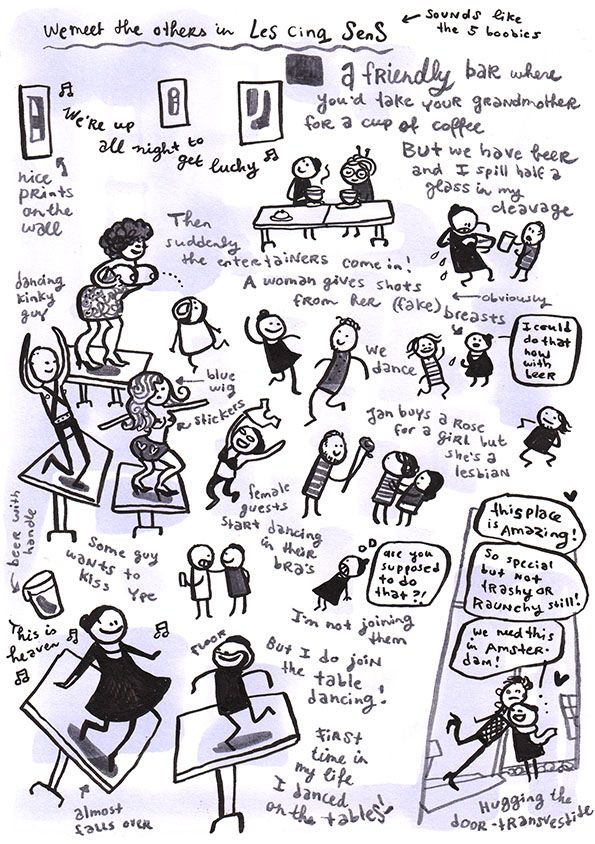 We meet the others in Les Cinq Sens
← sounds like
the 5 boobies
a friendly bar where
you'd take your grandmother
for a cup of coffee
We're up
all night to
get lucky
nice
prints
on the
wall
But we have beer
and I spill half a
glass in my
cleavage
Then
suddenly
the entertainers come in!
A woman gives shots
from her (fake) breasts
obviously
dancing
kinky
guy
I could
do that
now
with
beer
we
dance
blue
wig
stickers
Jan buys a rose
for a girl but
she's a
lesbian
female
guests
start dancing
in their
bra's
beer with
handle
Some guy
wants to
kiss Ype
are you
supposed
to do
that?!
I'm not joining
them
this place
is Amazing!
So special
but not
trashy or
raunchy still!
we need this
in Amster-
dam!
This is
heaven
Floor
But I do join
the table
dancing!
first
time in
my life
I danced
on the tables!
almost
falls over
Hugging the
door-transvestite